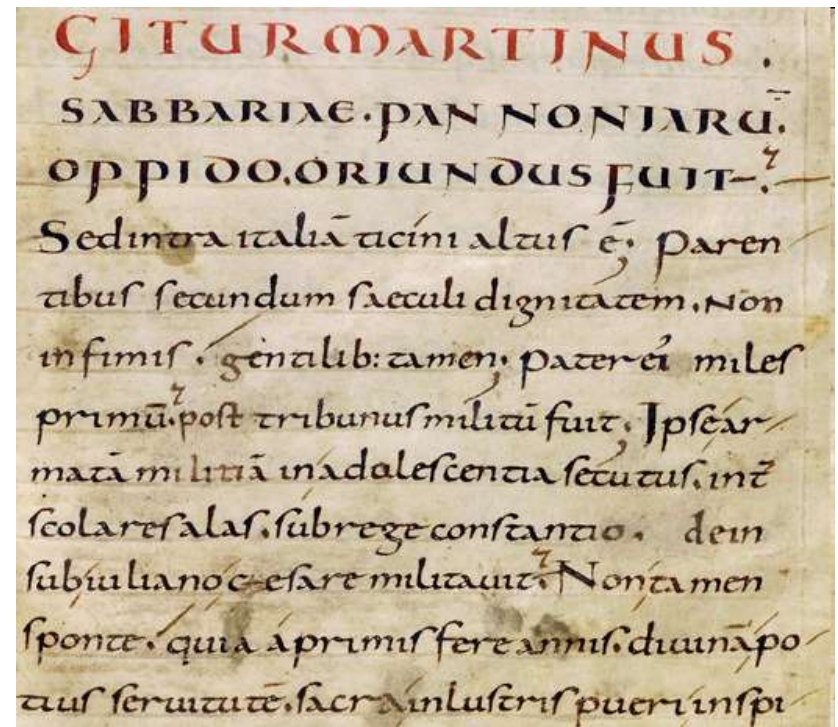 GITUR MARTINUS.
SABBARIAE. PANNONIARŪ.
OPPIDO. ORIUNDUS FUIT.
Sed intra italiā ticini altus ē; Paren
tibus secundum saeculi dignitatem. Non
infimis. gentilib: tamen. Pater ei' miles
primū. post tribunus militū fuit; Ipse ar
matā militiā in adolescentia secutus. int̄
scolares alas. sub rege constantio. dein
sub iuliano cesare militauit. Non tamen
sponte. quia a primis fere annis. diuinā po
tius seruitutē. sacra inlustris pueri inspi